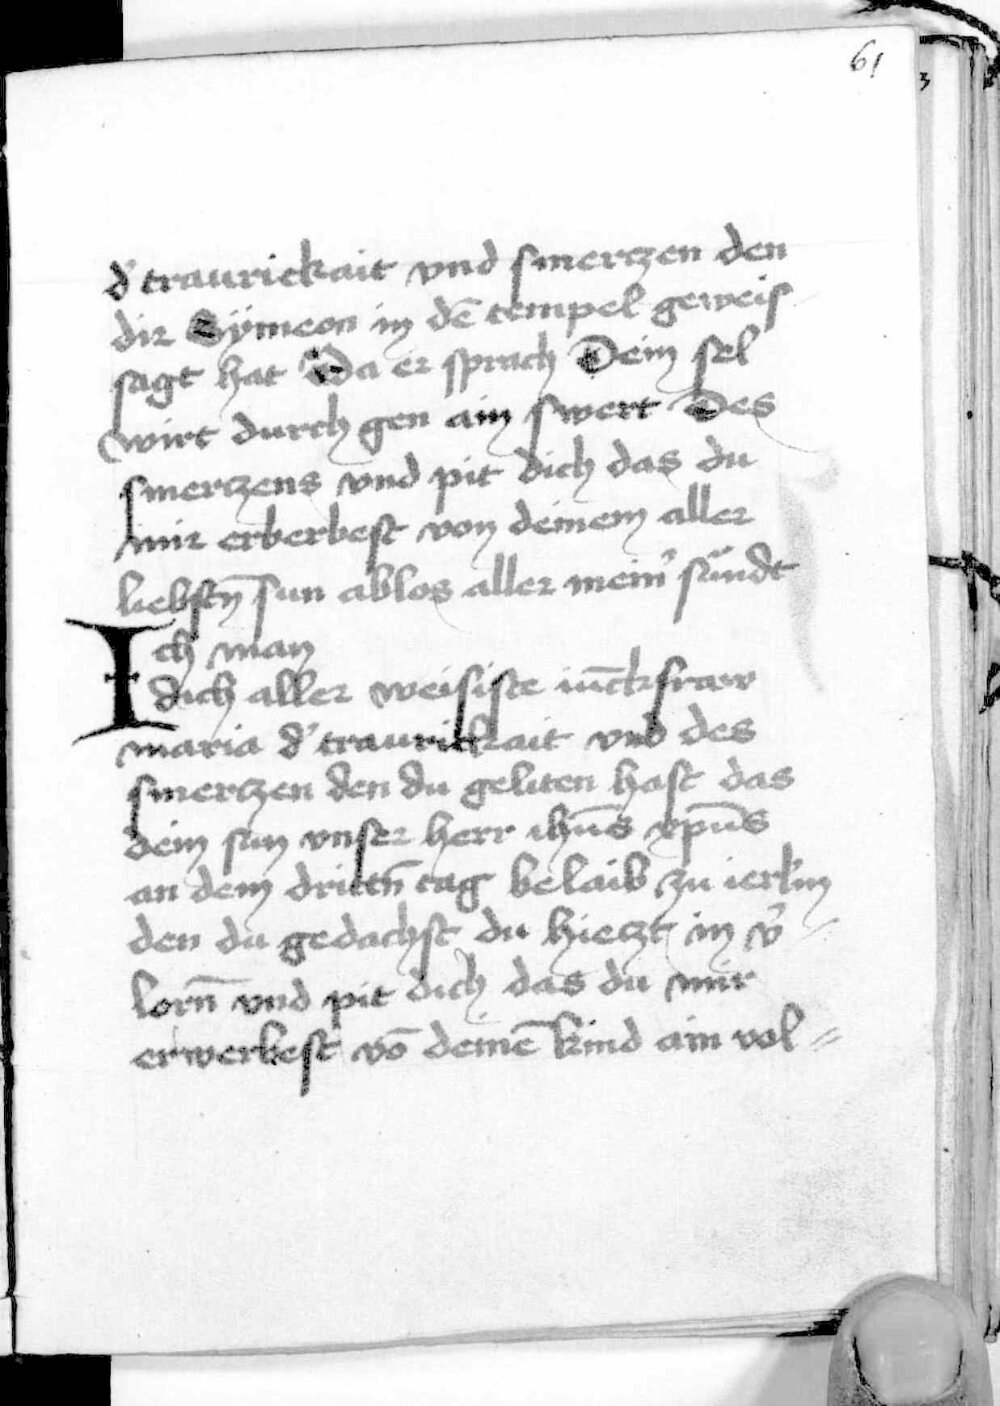 61
d' traurickait vnd smerczen den
dir Sÿmeon in dē tempel geweis
sagt hat Da er sprach Dein sel
wirt durch gen ain swert Des
smerczens vnd pit dich das du
mir erberbest von deinem aller
liebstn̄ sun ablos aller mein' sündt
Ich man
dich aller weisiste iūckfraw
maria d' traurickait vnd des
smerczen den du geliten hast das
dein sun vnser herr ihūs xpūs
an dem drittn̄ tag belaib zu ierl'm
den du gedachst du hietzt in v'-
lorn̄ vnd pit dich das du mir
erwerbest vō deinē kind ain vol-